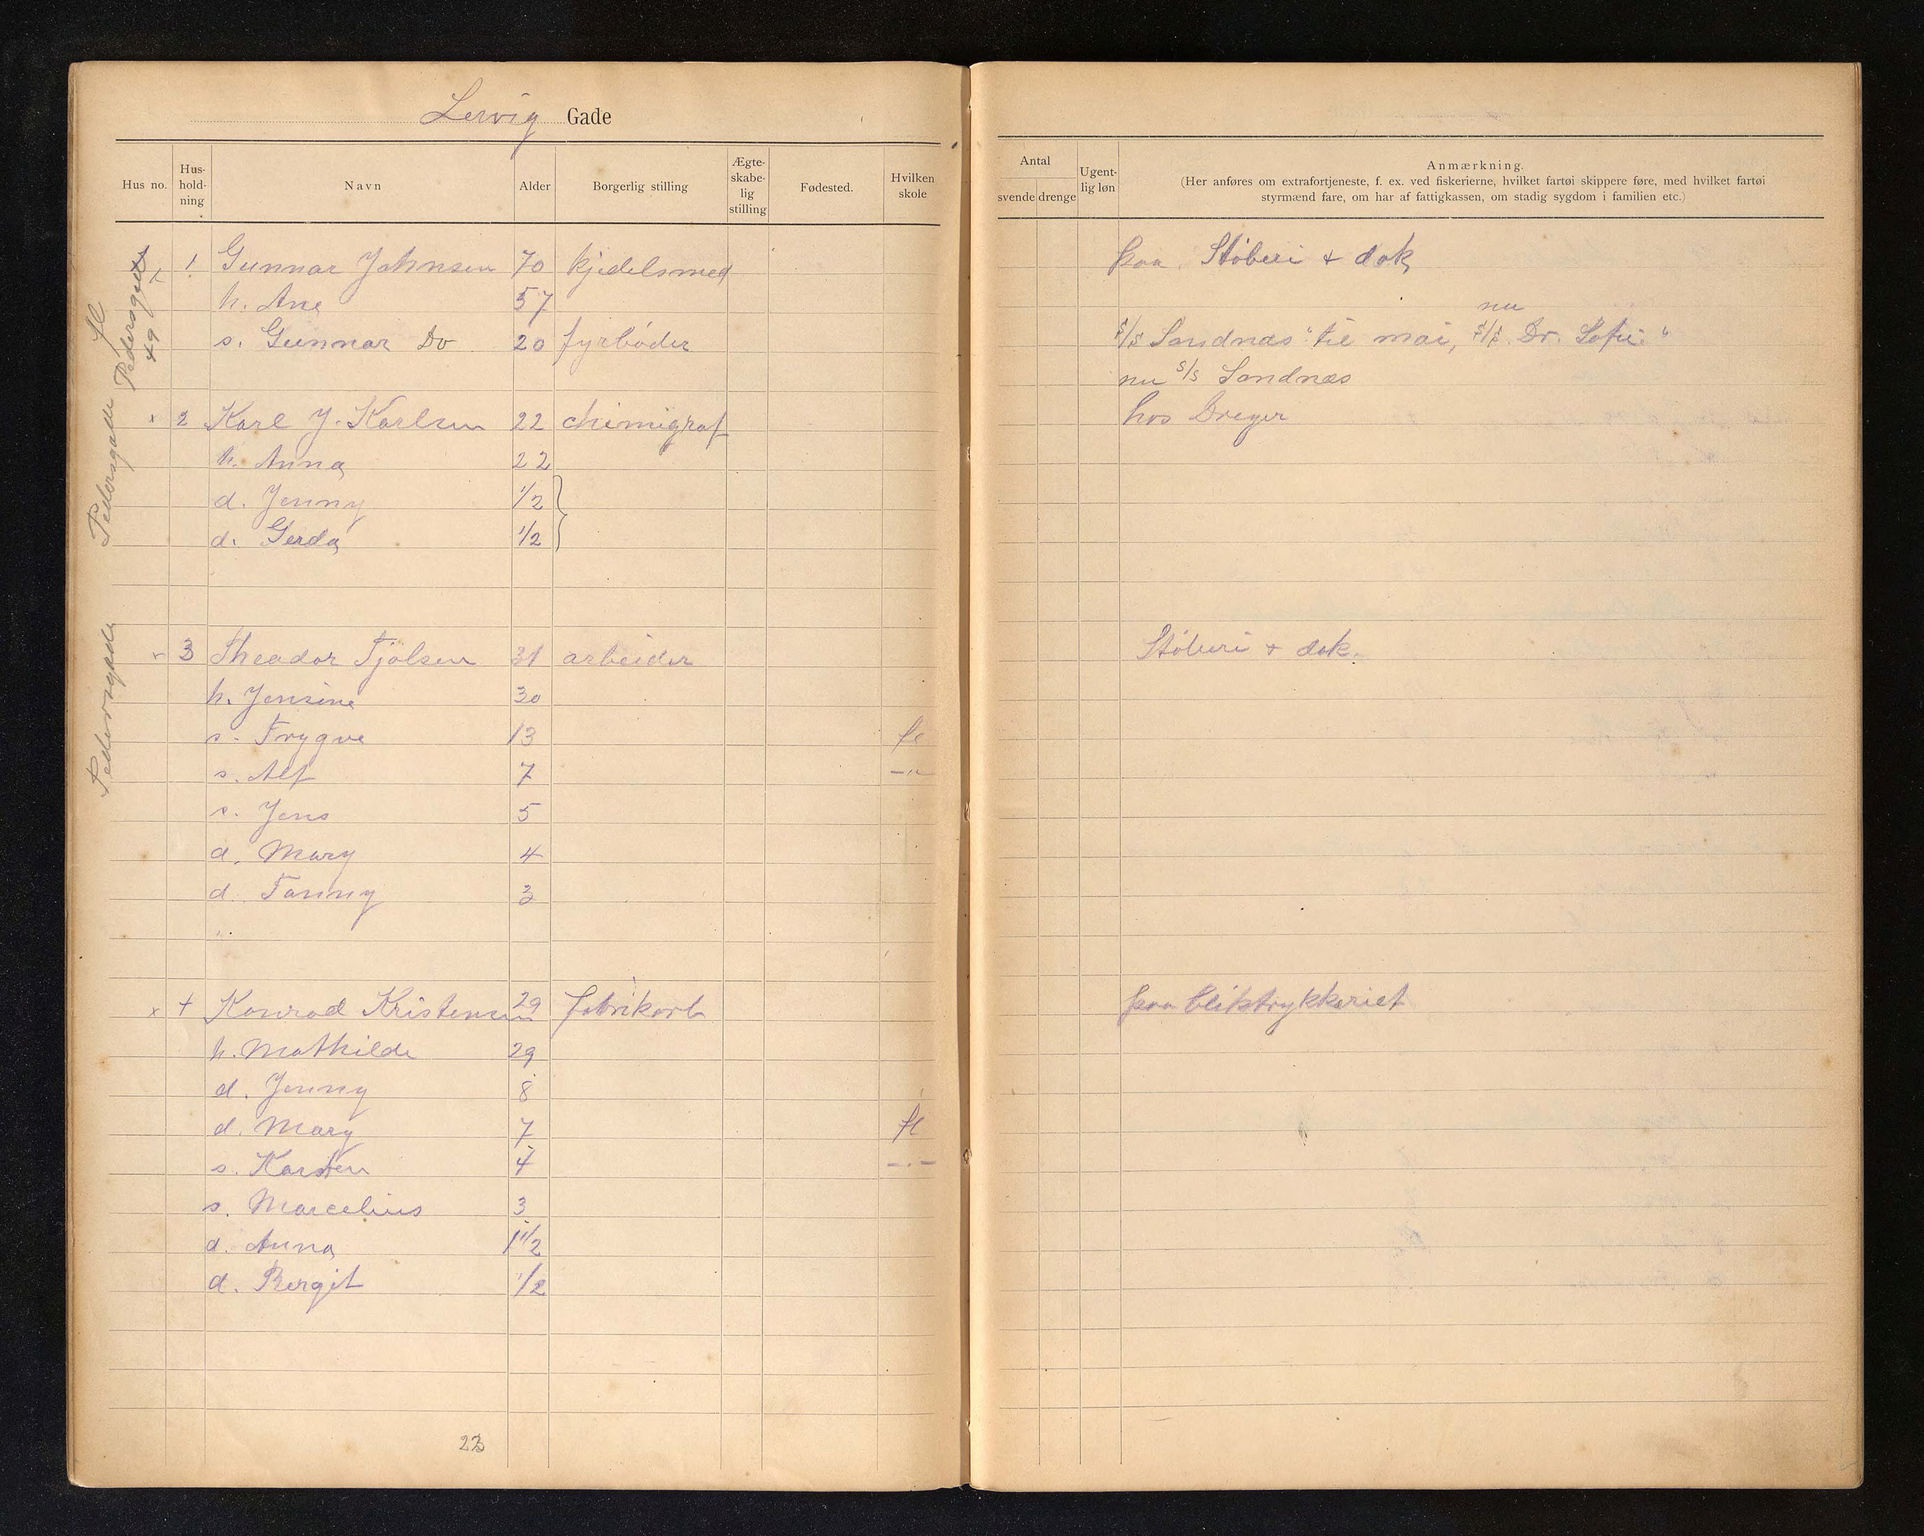 Lervig Gade
Hus no. Hus-hold-ning Navn Alder Borgerlig stilling Ægte-skabe-lig stilling Fødested. Hvilken skole
Antal svende drenge Ugent-lig løn Anmærkning.
(Her anføres om extrafortjeneste, f. ex. ved fiskerierne, hvilket fartøi skippere føre, med hvilket fartøi
styrmænd fare, om har af fattigkassen, om stadig sygdom i familien etc.)
Pedersgade
49
Pedersgade
Pedersgade
1 Gunnar Johnsen 70 kjedelsmed paa Støberi + dok
h. Ane 57
nu
s. Gunnar Do 20 fyrbøder S/S Sandnæs" til mai, S/S. Dr. Sofie"
nu S/S Sandnæs
x 2 Karl J. Karlsen 22 chimigraf hos Dreyer
h. Anna 22
d. Jenny 1/2
d. Gerda 1/2
3 Theodor Fjölsen 31 arbeider Støberi + dok.
h. Jensine 30
s. Trygve 13 fl
s. Alf 7 -"-
s. Jens 5
d. Mary 4
d. Fanny 3
x 4 Konrad Kristensen 29 fabrikarb paa bliktrykkeriet
h. Mathilde 29
d. Jenny 8
d. Mary 7 fl
s. Karsten 4 -"-
s. Marcelius 3
d. Anna 1 1/2
d. Bergit 1/2
23